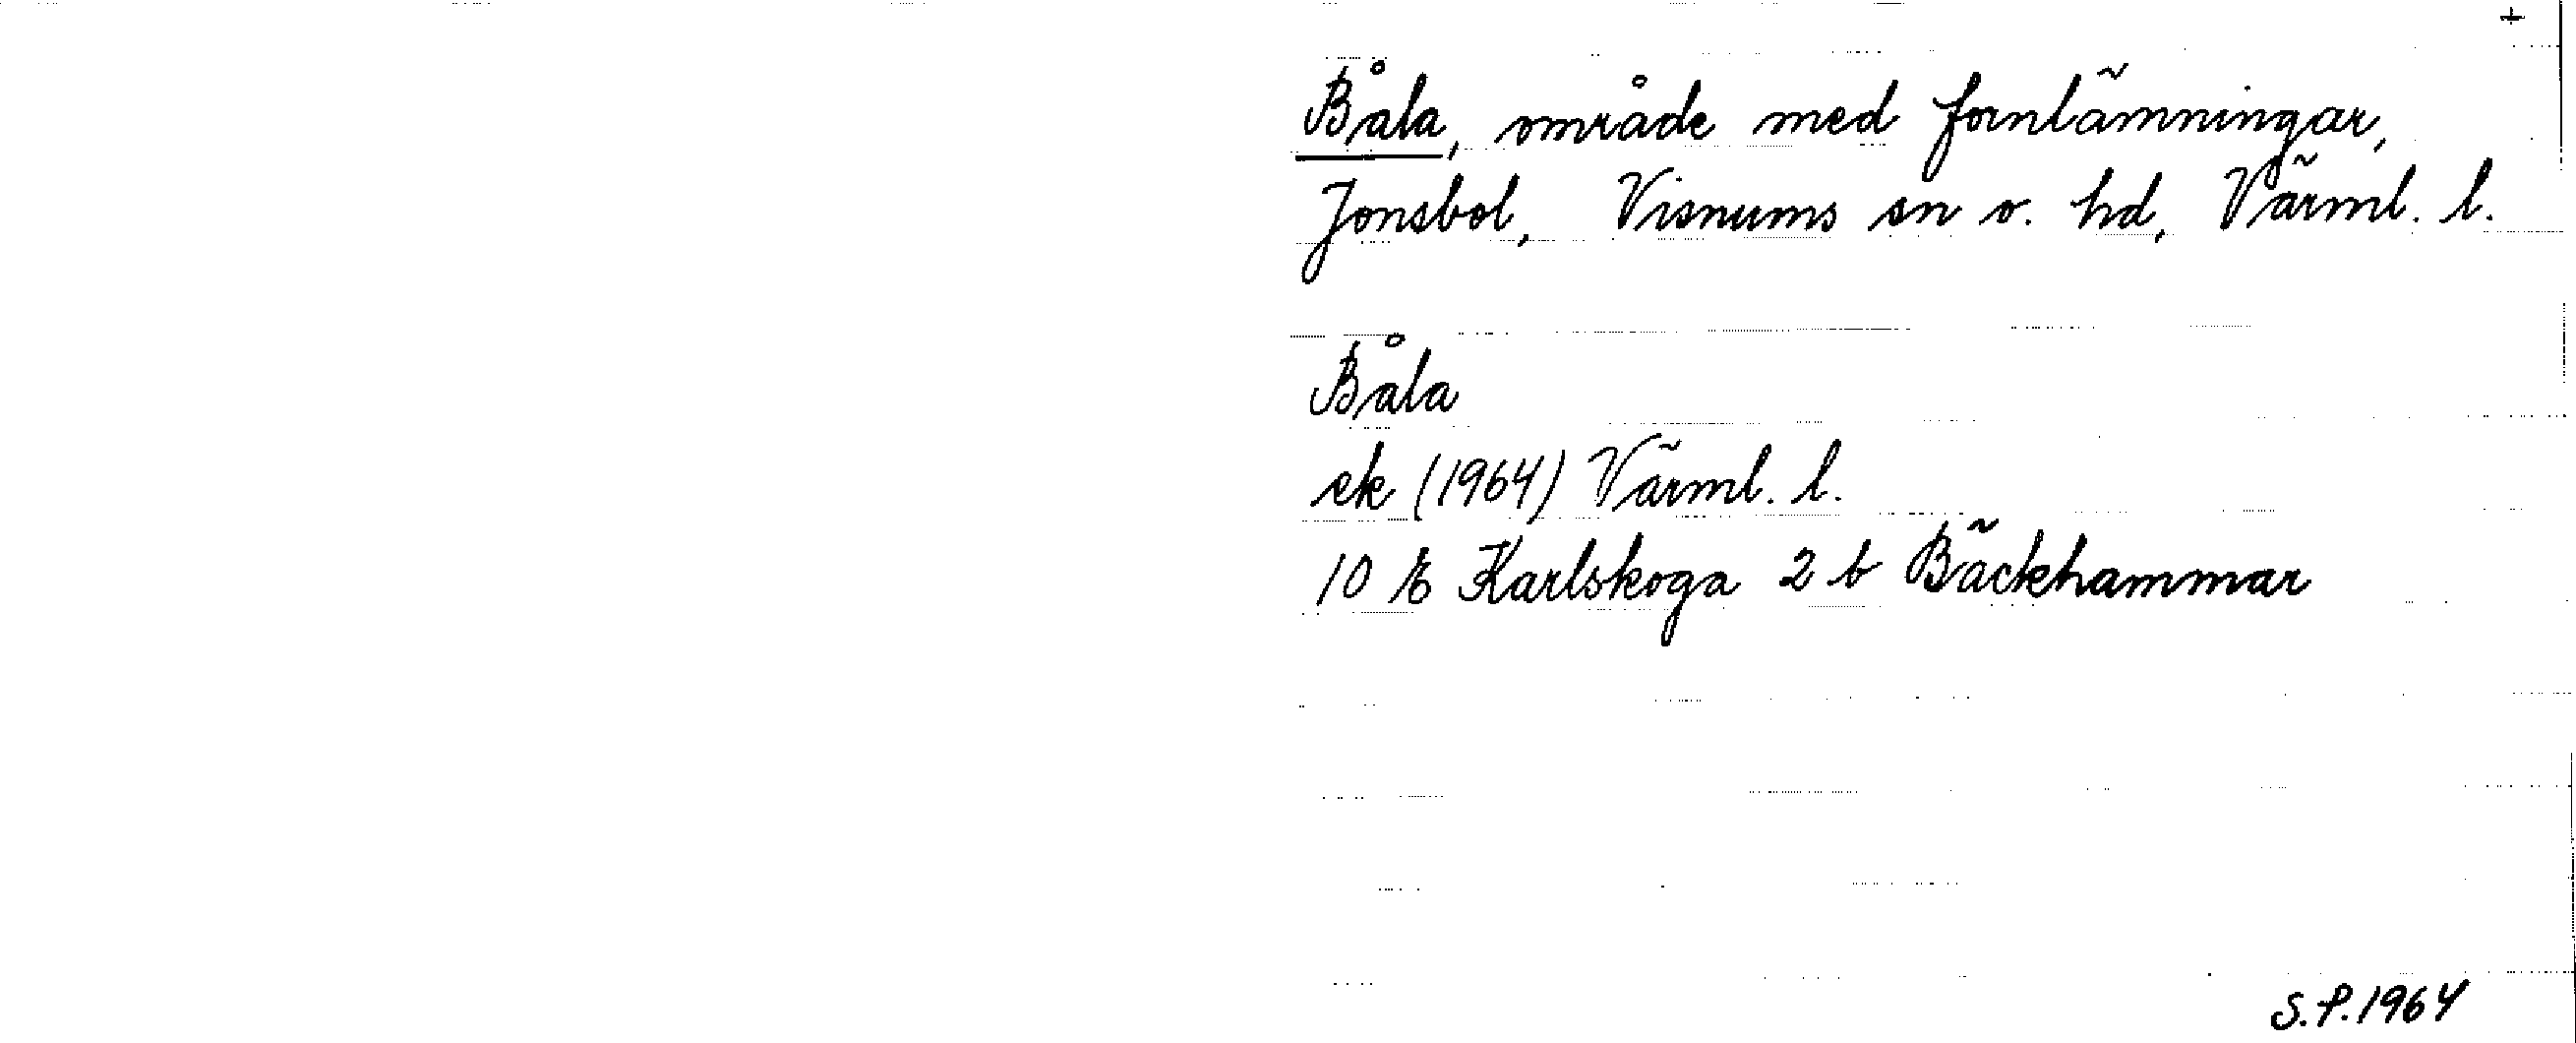 +
Båla, område med fornlämningar,
Jonsbol, Visnums sn o. hd, Värml. l.
Båla
ek (1964) Värml. l.
10 E Karlskoga 2 b Bäckhammar
S.P. 1964